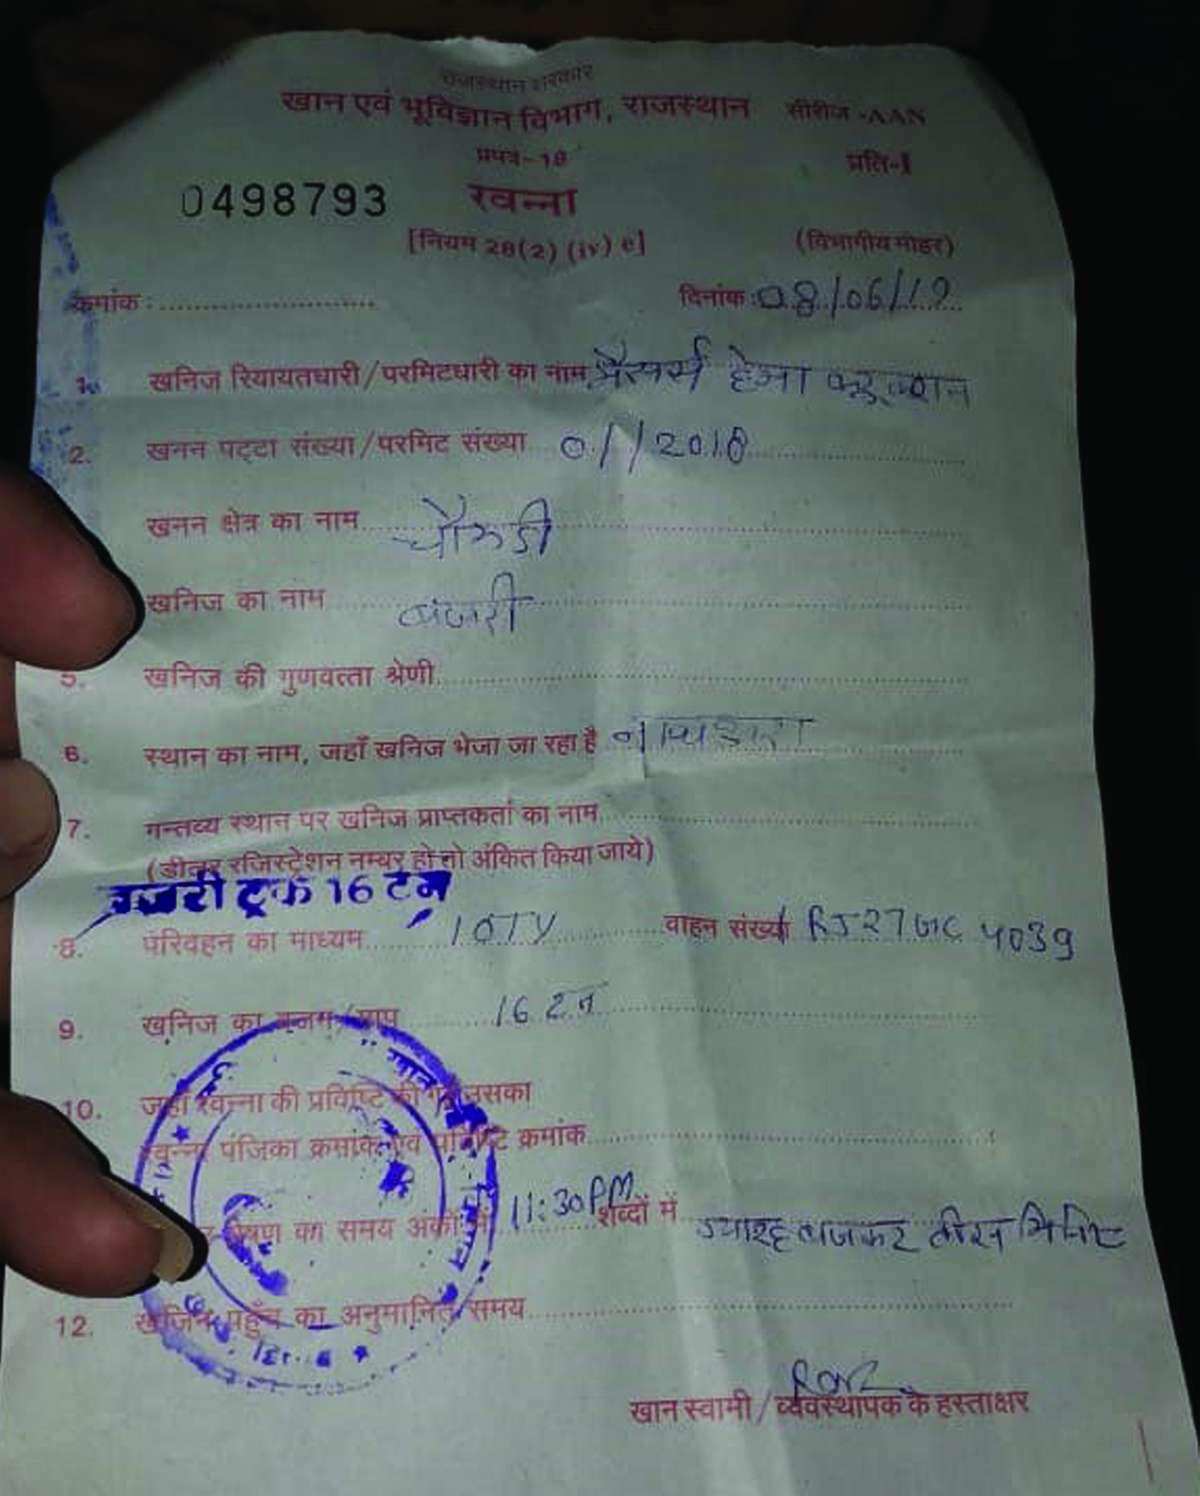 राजस्थान सरकार
खान एवं भूविज्ञान विभाग, राजस्थान सीरीज -AAN
प्रपत्र-18 प्रति-I
0498793 रवन्ना
[नियम 28(2) (iv) e] (विभागीय मोहर)
क्रमांक : दिनांक : 08/06/19
1. खनिज रियायतधारी/परमिटधारी का नाम मैसर्स हेमा
2. खनन पट्टा संख्या/परमिट संख्या 01/2018
खनन क्षेत्र का नाम
खनिज का नाम बजरी
5. खनिज की गुणवत्ता श्रेणी
6. स्थान का नाम, जहाँ खनिज भेजा जा रहा है नाथद्वारा
7. गन्तव्य स्थान पर खनिज प्राप्तकर्ता का नाम
(डीलर रजिस्ट्रेशन नम्बर हो तो अंकित किया जाये)
बजरी ट्रक 16 टन
8. परिवहन का माध्यम 10Ty वाहन संख्या RJ27 4039
9. खनिज का वजन/माप 16 टन
10. जहाँ रवन्ना की प्रविष्टि की गई उसका
रवन्ना पंजिका क्रमांक एवं प्रविष्टि क्रमांक
का समय अंकों में 11:30PM शब्दों में ग्यारह बजकर तीस मिनिट
12. खनिज पहुँच का अनुमानित समय
खान स्वामी/व्यवस्थापक के हस्ताक्षर